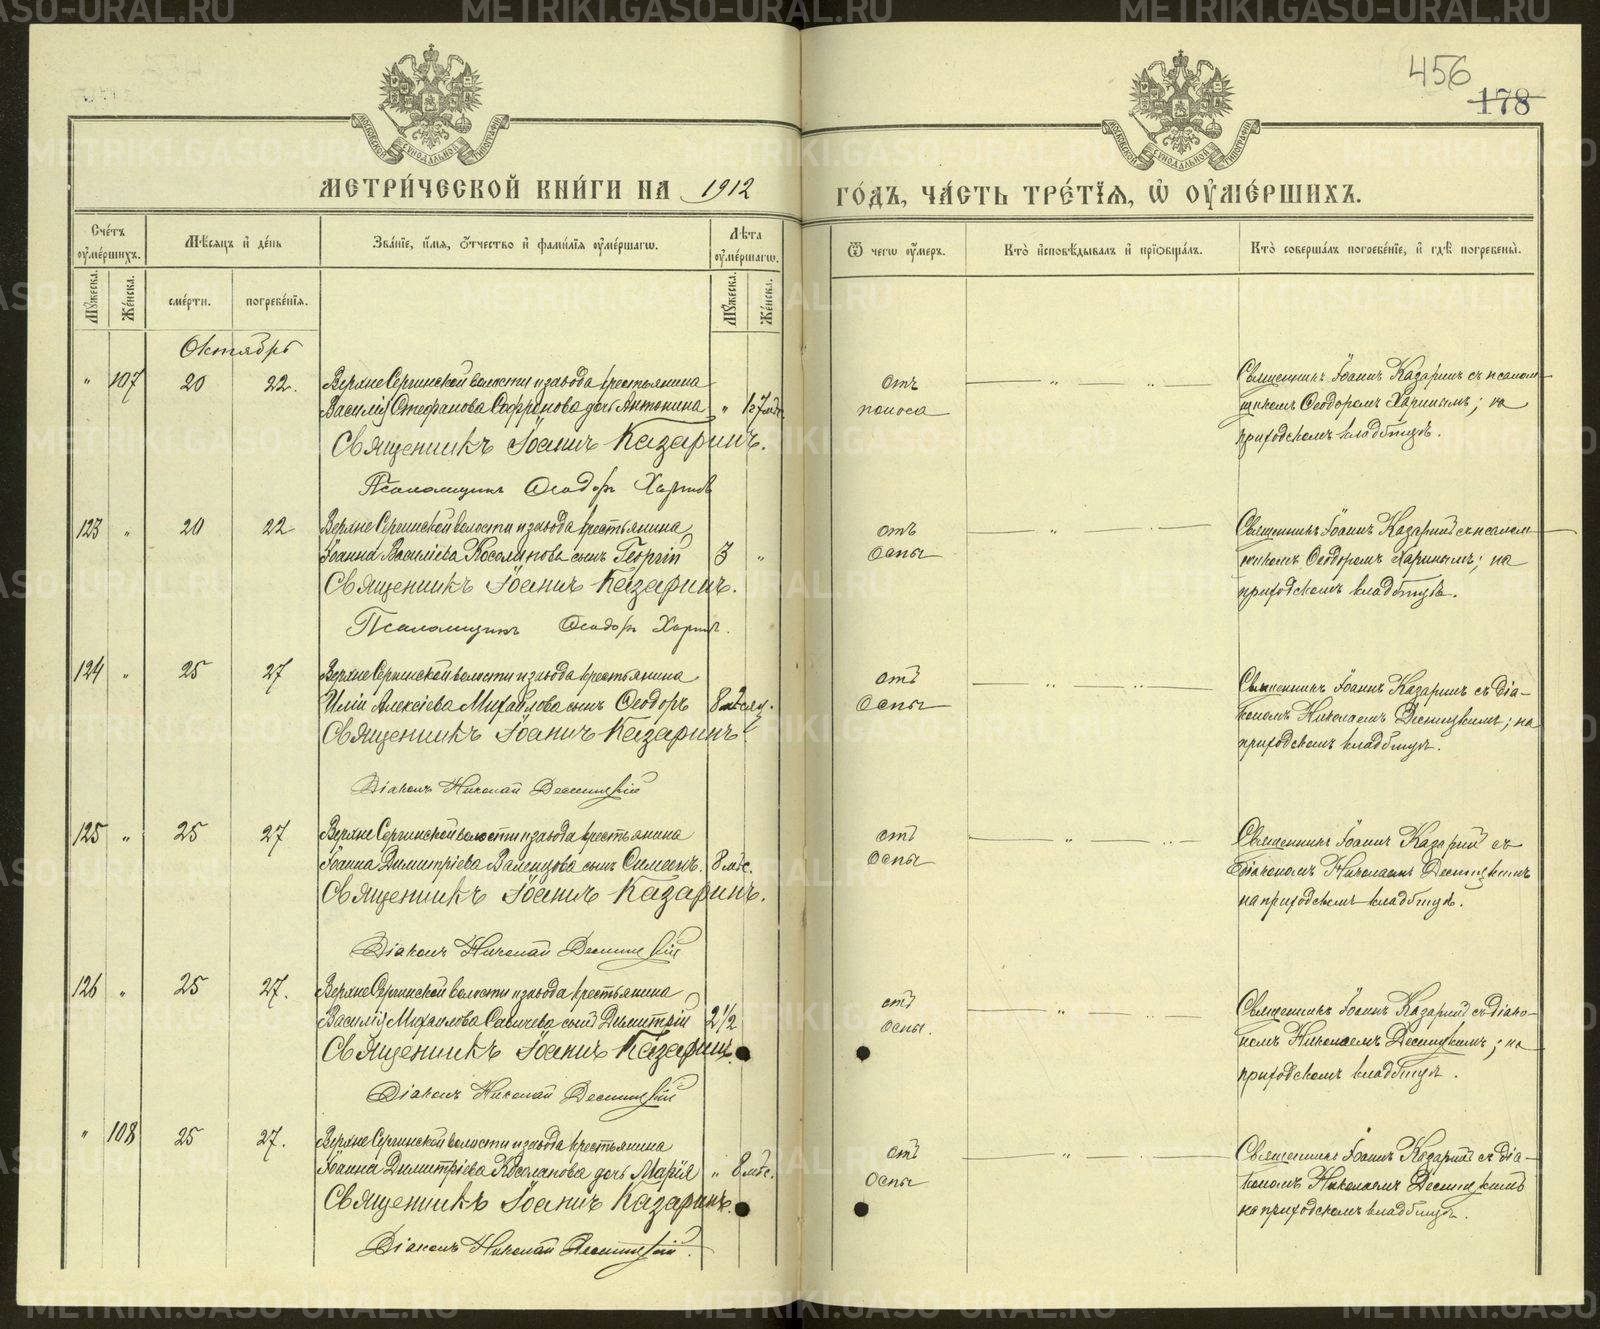 456
178
МЕТРИ́ЧЕСКОЙ КНИ́ГИ НА 1912
ГО́ДЪ, ЧА́СТЬ ТРЕ́ТІѦ, Ѡ҆ ОУ҆МЕ́РШИХЪ.
Сче́тъ оу҆ме́ршихъ.
Мꙋ́жеска.
Же́нска.
Мѣ́сяцъ и҆ де́нь
сме́рти.
погребе́нїя.
Зва́нїе, и҆́мя, ѻ҆́тчество и҆ фами́лїя оу҆ме́ршагѡ.
Лѣ́та оу҆ме́ршагѡ.
Мꙋ́жеска.
Же́нска.
Ѿ чегѡ̀ оу҆́меръ.
Кто̀ и҆сповѣ́дывалъ и҆ прїѡбща́лъ.
Кто̀ соверша́лъ погребе́нїе, и҆ гдѣ̀ погребены̀.
Октябрь
" 107 20 22.
Верхне Сергинской волости и завода крестьянина
Василія Стефанова Софронова дочь Антонина " 1 г. 7 мѣс.
Священникъ Іоаннъ Казаринъ.
Псаломщикъ Ѳеодоръ Харинъ
отъ
поноса
Священникъ Іоаннъ Казаринъ съ псалом-
щикомъ Ѳеодоромъ Харинымъ; на
приходскомъ кладбищѣ.
123 " 20 22
Верхне Сергинской волости и завода крестьянина
Іоанна Василіева Косолапова сынъ Георгій 3 "
Священникъ Іоаннъ Казаринъ.
Псаломщикъ Ѳеодоръ Харинъ.
отъ
оспы
Священникъ Іоаннъ Казаринъ съ псалом-
щикомъ Ѳеодоромъ Харинымъ; на
приходскомъ кладбищѣ.
124 " 25 27
Верхне Сергинской волости и завода крестьянина
Иліи Алексіева Михайлова сынъ Ѳеодоръ 8 мѣсяц.
Священникъ Іоаннъ Казаринъ
Діаконъ Николай Десницкій
отъ
оспы
Священникъ Іоаннъ Казаринъ съ діа-
кономъ Николаемъ Десницкимъ; на
приходскомъ кладбищѣ.
125 " 25 27
Верхне Сергинской волости и завода крестьянина
Іоанна Димитріева сынъ Симеонъ. 8 мѣс.
Священникъ Іоаннъ Казаринъ.
Діаконъ Николай Десницкій
отъ
оспы
Священникъ Іоаннъ Казаринъ съ
діакономъ Николаемъ Десницкимъ
на приходскомъ кладбищѣ.
126 " 25 27.
Верхне Сергинской волости и завода крестьянина
Василія Михаилова Савичева сынъ Димитрій 2 1/2
Священникъ Іоаннъ Казаринъ.
Діаконъ Николай Десницкій
отъ
оспы.
Священникъ Іоаннъ Казаринъ съ діако-
номъ Николаемъ Десницкимъ; на
приходскомъ кладбищѣ.
" 108 25 27.
Верхне Сергинской волости и завода крестьянина
Іоанна Димитріева Косолапова дочь Марія " 8 мѣс.
Священникъ Іоаннъ Казаринъ.
Діаконъ Николай Десницкій.
отъ
оспы
Священникъ Іоаннъ Казаринъ съ діа-
кономъ Николаемъ Десницкимъ
на приходскомъ кладбищѣ.
METRIKI.GASO-URAL.RU